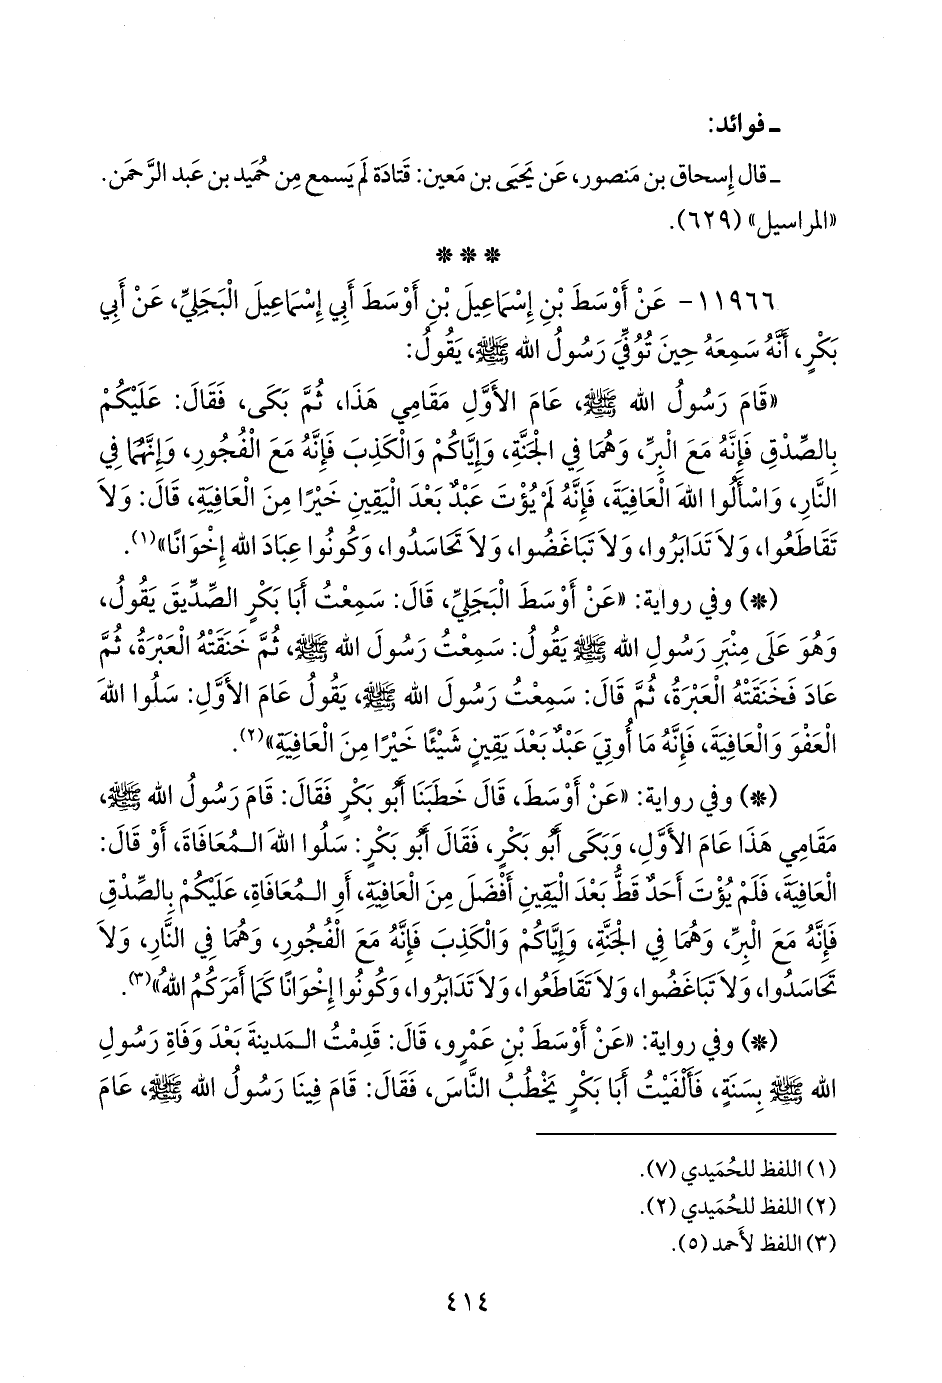 ـ فوائد:
ـ قال إسحاق بن مَنصور، عَن يَحيَى بن مَعين: قَتادَة لَم يَسمع مِن حُميد بن عَبد الرَّحمَن.
«المراسيل» (٦٢٩).
* * *
١١٩٦٦ - عَنْ أَوْسَطَ بْنِ إِسْمَاعِيلَ بْنِ أَوْسَطَ أَبِي إِسْمَاعِيلَ الْبَجَلِيِّ، عَنْ أَبِي
بَكْرٍ، أَنَّهُ سَمِعَهُ حِينَ تُوُفِّيَ رَسُولُ الله ﷺ، يَقُولُ:
«قَامَ رَسُولُ الله ﷺ، عَامَ الأَوَّلِ مَقَامِي هَذَا، ثُمَّ بَكَى، فَقَالَ: عَلَيْكُمْ
بِالصِّدْقِ فَإِنَّهُ مَعَ الْبِرِّ، وَهُمَا فِي الْجَنَّةِ، وَإِيَّاكُمْ وَالْكَذِبَ فَإِنَّهُ مَعَ الْفُجُورِ، وَإِنَّهُمَا فِي
النَّارِ، وَاسْأَلُوا اللهَ الْعَافِيَةَ، فَإِنَّهُ لَمْ يُؤْتَ عَبْدٌ بَعْدَ الْيَقِينِ خَيْرًا مِنَ الْعَافِيَةِ، قَالَ: وَلاَ
تَقَاطَعُوا، وَلاَ تَدَابَرُوا، وَلاَ تَبَاغَضُوا، وَلاَ تَحَاسَدُوا، وَكُونُوا عِبَادَ الله إِخْوَانًا»(١).
(*) وفي رواية: «عَنْ أَوْسَطَ الْبَجَلِيِّ، قَالَ: سَمِعْتُ أَبَا بَكْرٍ الصِّدِّيقَ يَقُولُ،
وَهُوَ عَلَى مِنْبَرِ رَسُولِ الله ﷺ يَقُولُ: سَمِعْتُ رَسُولَ الله ﷺ، ثُمَّ خَنَقَتْهُ الْعَبْرَةُ، ثُمَّ
عَادَ فَخَنَقَتْهُ الْعَبْرَةُ، ثُمَّ قَالَ: سَمِعْتُ رَسُولَ الله ﷺ، يَقُولُ عَامَ الأَوَّلِ: سَلُوا اللهَ
الْعَفْوَ وَالْعَافِيَةَ، فَإِنَّهُ مَا أُوتِيَ عَبْدٌ بَعْدَ يَقِينٍ شَيْئًا خَيْرًا مِنَ الْعَافِيَةِ»(٢).
(*) وفي رواية: «عَنْ أَوْسَطَ، قَالَ خَطَبَنَا أَبُو بَكْرٍ فَقَالَ: قَامَ رَسُولُ الله ﷺ،
مَقَامِي هَذَا عَامَ الأَوَّلِ، وَبَكَى أَبُو بَكْرٍ، فَقَالَ أَبُو بَكْرٍ: سَلُوا اللهَ الـمُعَافَاةَ، أَوْ قَالَ:
الْعَافِيَةَ، فَلَمْ يُؤْتَ أَحَدٌ قَطُّ بَعْدَ الْيَقِينِ أَفْضَلَ مِنَ الْعَافِيَةِ، أَوِ الـمُعَافَاةِ، عَلَيْكُمْ بِالصِّدْقِ
فَإِنَّهُ مَعَ الْبِرِّ، وَهُمَا فِي الْجَنَّةِ، وَإِيَّاكُمْ وَالْكَذِبَ فَإِنَّهُ مَعَ الْفُجُورِ، وَهُمَا فِي النَّارِ، وَلاَ
تَحَاسَدُوا، وَلاَ تَبَاغَضُوا، وَلاَ تَقَاطَعُوا، وَلاَ تَدَابَرُوا، وَكُونُوا إِخْوَانًا كَمَا أَمَرَكُمُ اللهُ»(٣).
(*) وفي رواية: «عَنْ أَوْسَطَ بْنِ عَمْرٍو، قَالَ: قَدِمْتُ الـمَدِينَةَ بَعْدَ وَفَاةِ رَسُولِ
الله ﷺ بِسَنَةٍ، فَأَلْفَيْتُ أَبَا بَكْرٍ يَخْطُبُ النَّاسَ، فَقَالَ: قَامَ فِينَا رَسُولُ الله ﷺ، عَامَ
(١) اللفظ للحُمَيدي (٧).
(٢) اللفظ للحُمَيدي (٢).
(٣) اللفظ لأحمد (٥).
٤١٤